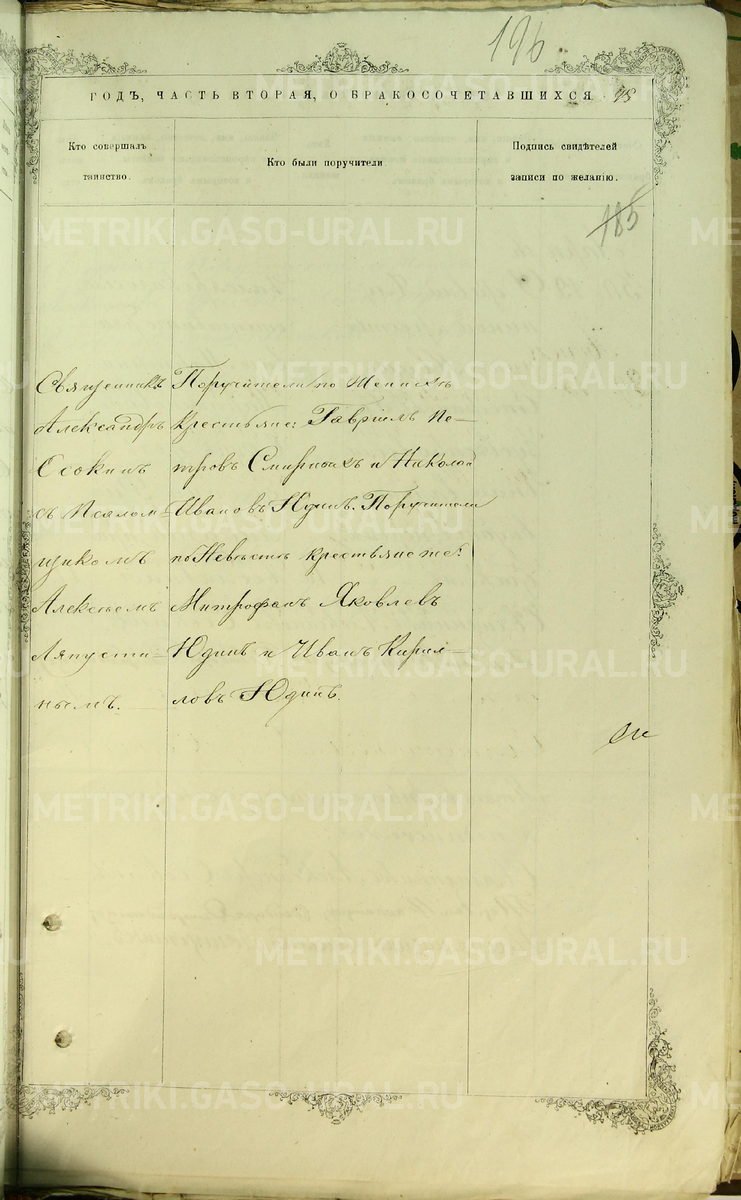 196
ГОДЪ, ЧАСТЬ ВТОРАЯ, О БРАКОСОЧЕТАВШИХСЯ.
Кто совершалъ
таинство.
Кто были поручители.
Подпись свидѣтелей
записи по желанію.
185
Священникъ
Александръ
Осокинъ
съ Псалом-
щикомъ
Алексѣемъ
Ляпусти-
нымъ.
Поручители по Женихѣ
крестьяне: Гавріилъ Пе-
тровъ Смирныхъ и Николай
Ивановъ Юдинъ. Поручители
по Невѣстѣ крестьяне же:
Митрофанъ Яковлевъ
Юдинъ и Иванъ Кирил-
ловъ Юдинъ.
METRIKI.GASO-URAL.RU